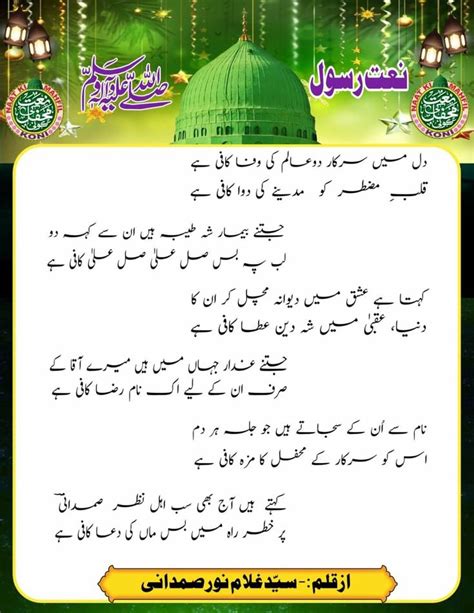 نعت رسول صلی اللہ علیہ وسلم
NAAT KI MAHFIL
KONI
NAAT KI MAHFIL
KONI
دل میں سرکار دوعالم کی وفا کافی ہے
قلبِ مضطر کو مدینے کی دوا کافی ہے
جتنے بیمار شہ طیبہ ہیں ان سے کہہ دو
لب پہ بس صل علیٰ صل علیٰ کافی ہے
کہتا ہے عشق میں دیوانہ مچل کر ان کا
دنیا، عقبیٰ میں شہ دین عطا کافی ہے
جتنے غدار جہاں میں ہیں میرے آقا کے
صرف ان کے لیے اک نام رضا کافی ہے
نام سے اُن کے سجاتے ہیں جو جلسہ ہر دم
اس کو سرکار کے محفل کا مزہ کافی ہے
کہتے ہیں آج بھی سب اہل نظر صمدانی
پر خطر راہ میں بس ماں کی دعا کافی ہے
ازقلم:- سیّد غلام نور صمدانی